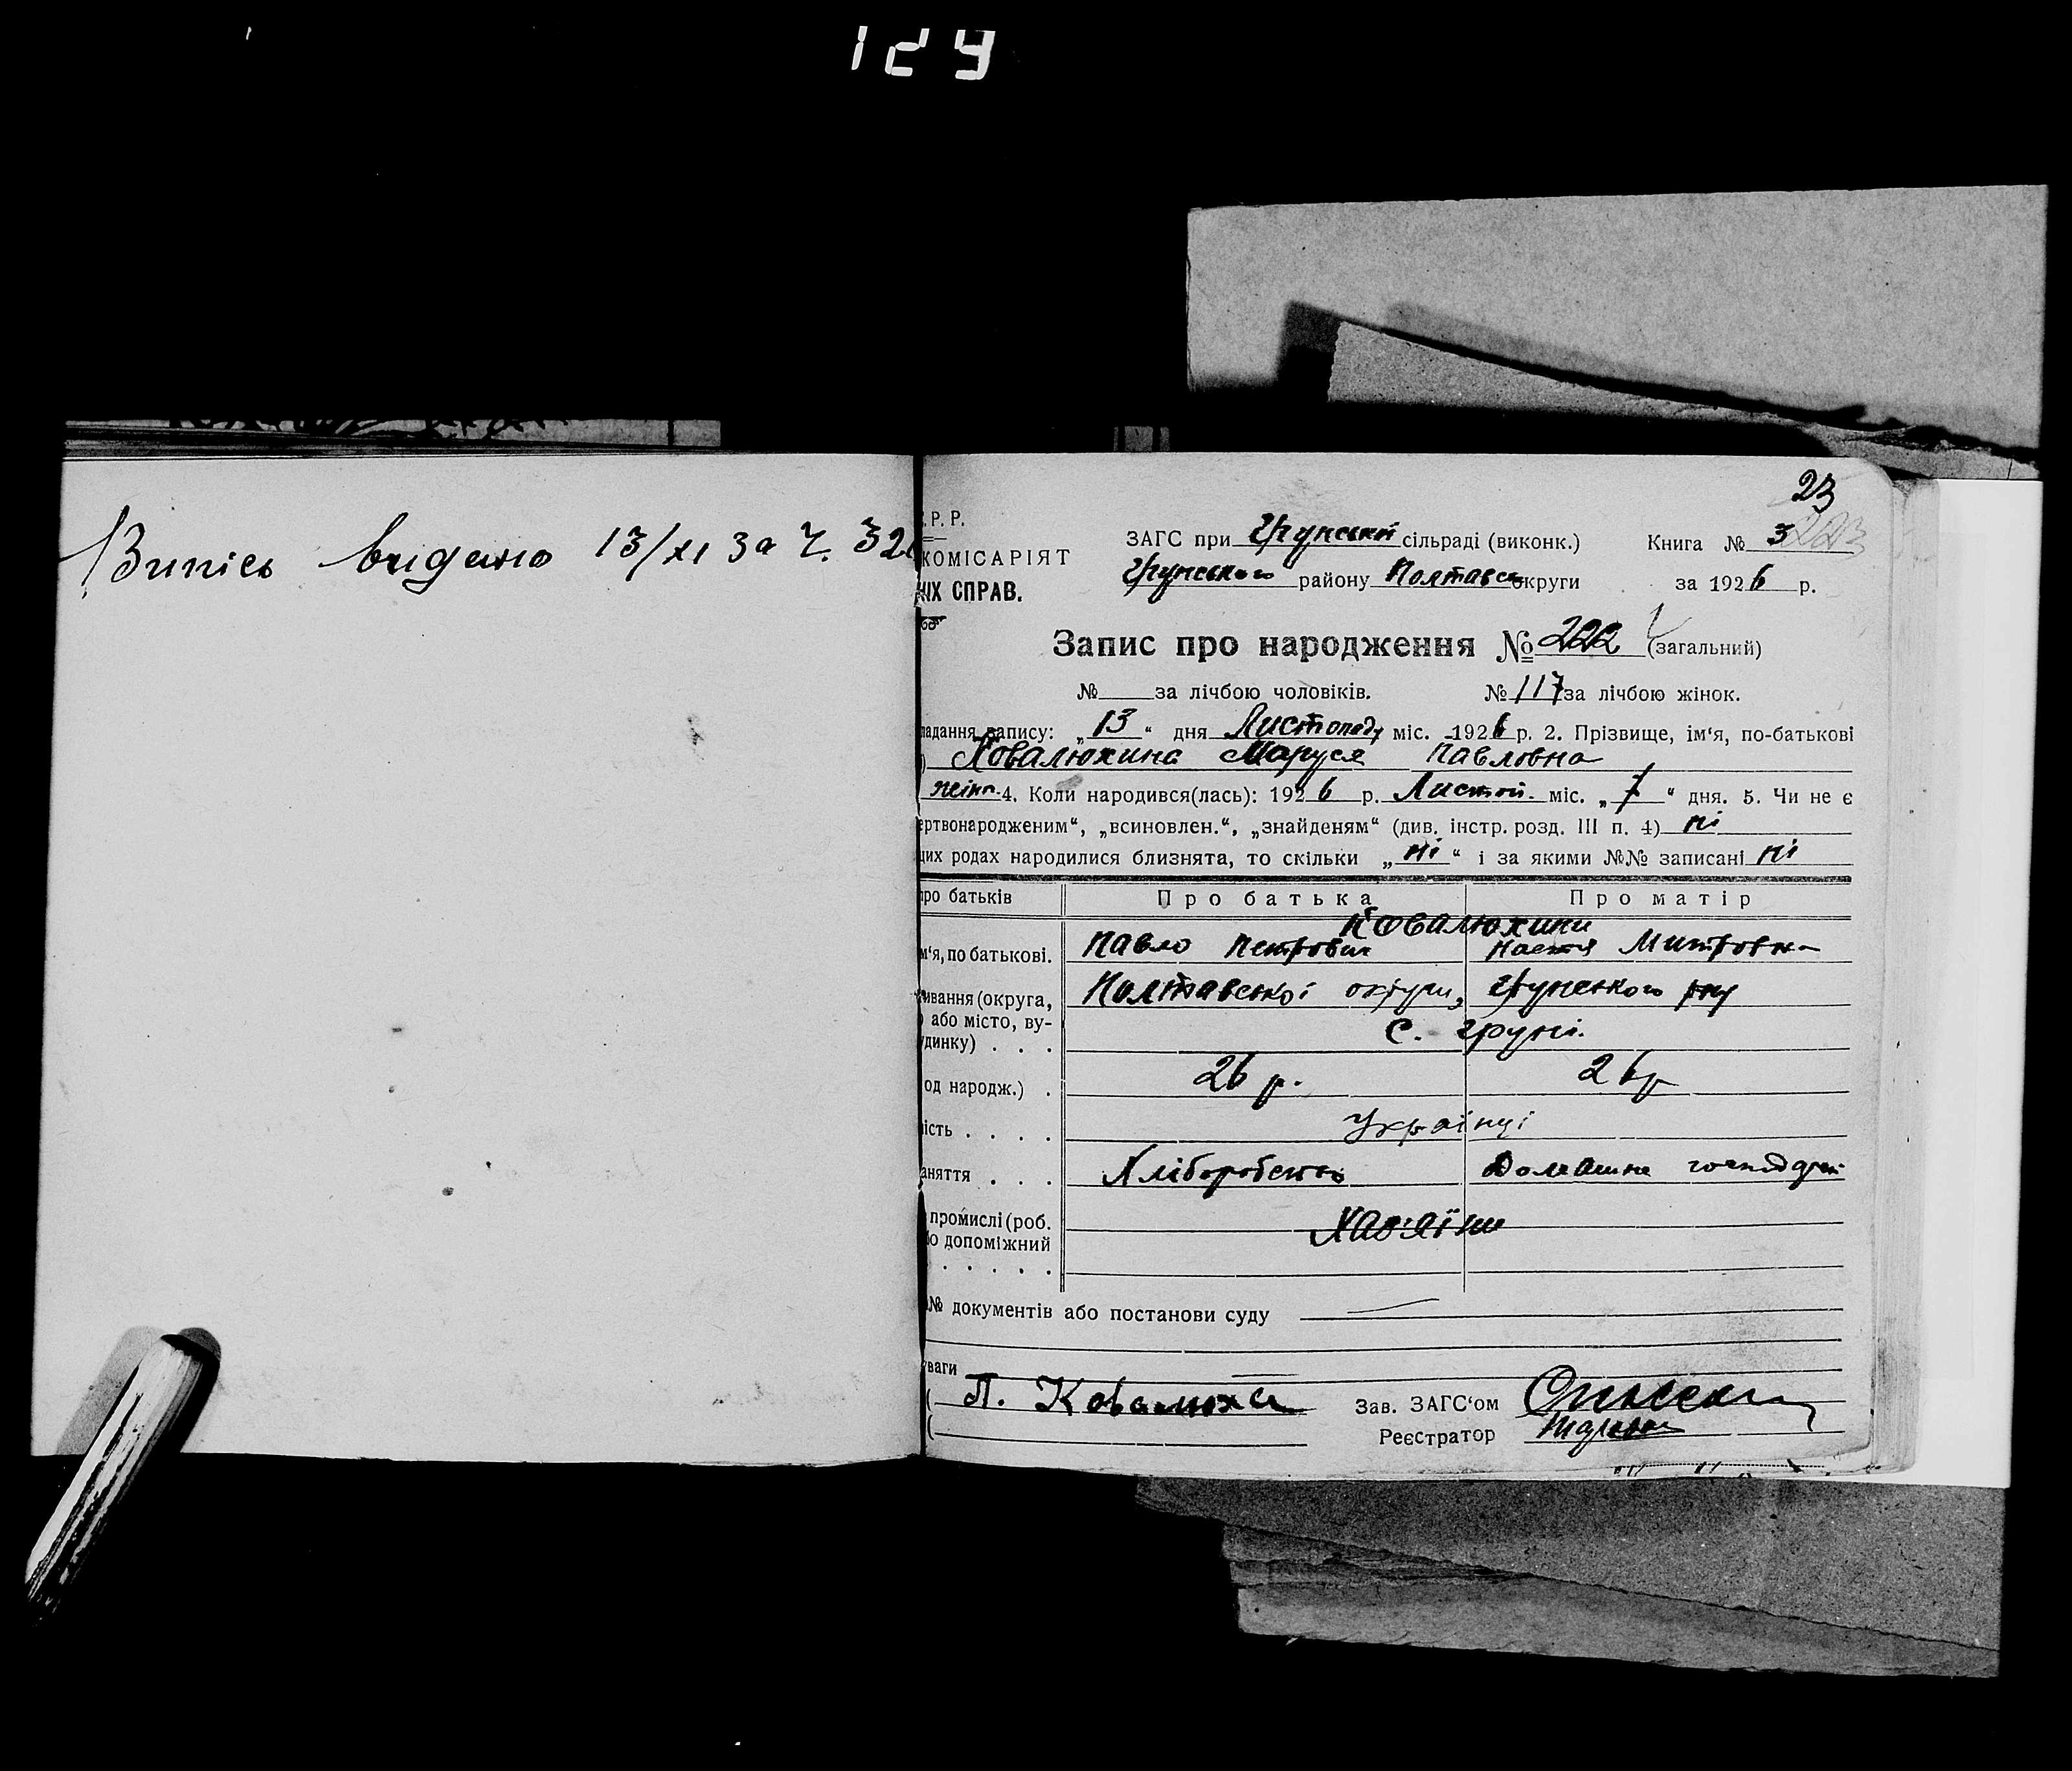 129
Випісь видано 13/XI за Ч. 32
23
223
.Р.Р.
ЗАГС при Грунській сільраді (виконк.) Книга № 3
КОМІСАРІЯТ
Грунського району Полтавськ округи за 1926 р.
ІХ СПРАВ.
Запис про народження № 222 (загальний)
№ за лічбою чоловіків. № 117 за лічбою жінок.
ладання запису: „13“ дня Листопаду міс. 1926 р. 2. Прізвище, ім‘я, по-батькові
) Ковалюхина Маруся Павловна
жіно. 4. Коли народився(лась): 1926 р. Листоп. міс. „7“ дня. 5. Чи не є
ертвонародженим“, „всиновлен.“, „знайденям“ (див. інстр. розд. III п. 4) ні
цих родах народилися близнята, то скільки „ні“ і за якими №№ записані ні
про батьків Про батька Про матір
Ковалюхини
м‘я, по батькові. Павло Петрович Настя Митровна
ивання (округа, Полтавської округи, Грунського рну
або місто, ву-
с. Груні.
удинку) . . .
од народж.) . 26 р. 26 р
ість . . . . Українці
аняття . . . Хліборобство Домашнє господар
промислі (роб. Хазяїни
о допоміжний
. . . . .
№ документів або постанови суду
уваги
( П. Ковалюха Зав. ЗАГС‘ом
( Реєстратор